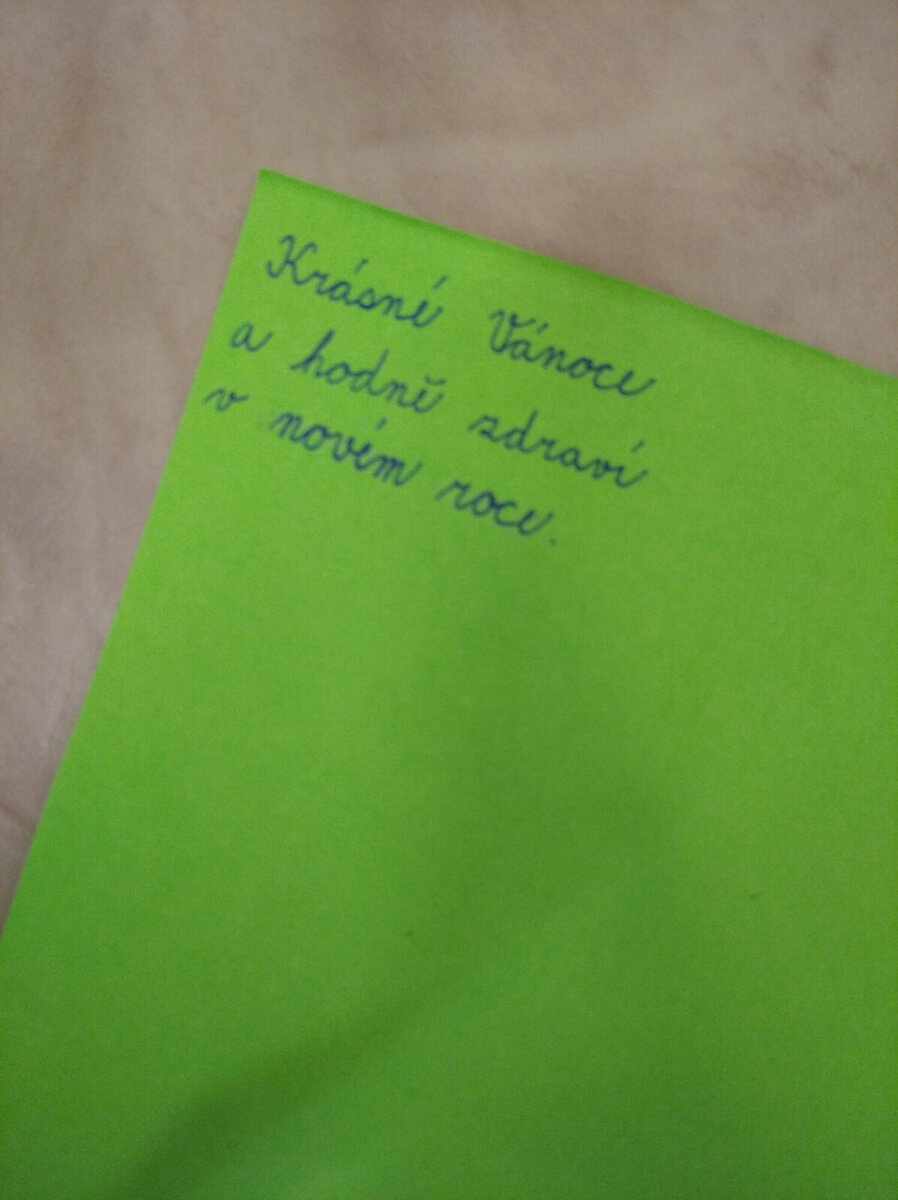 Krásné Vánoce
a hodně zdraví
v novém roce.